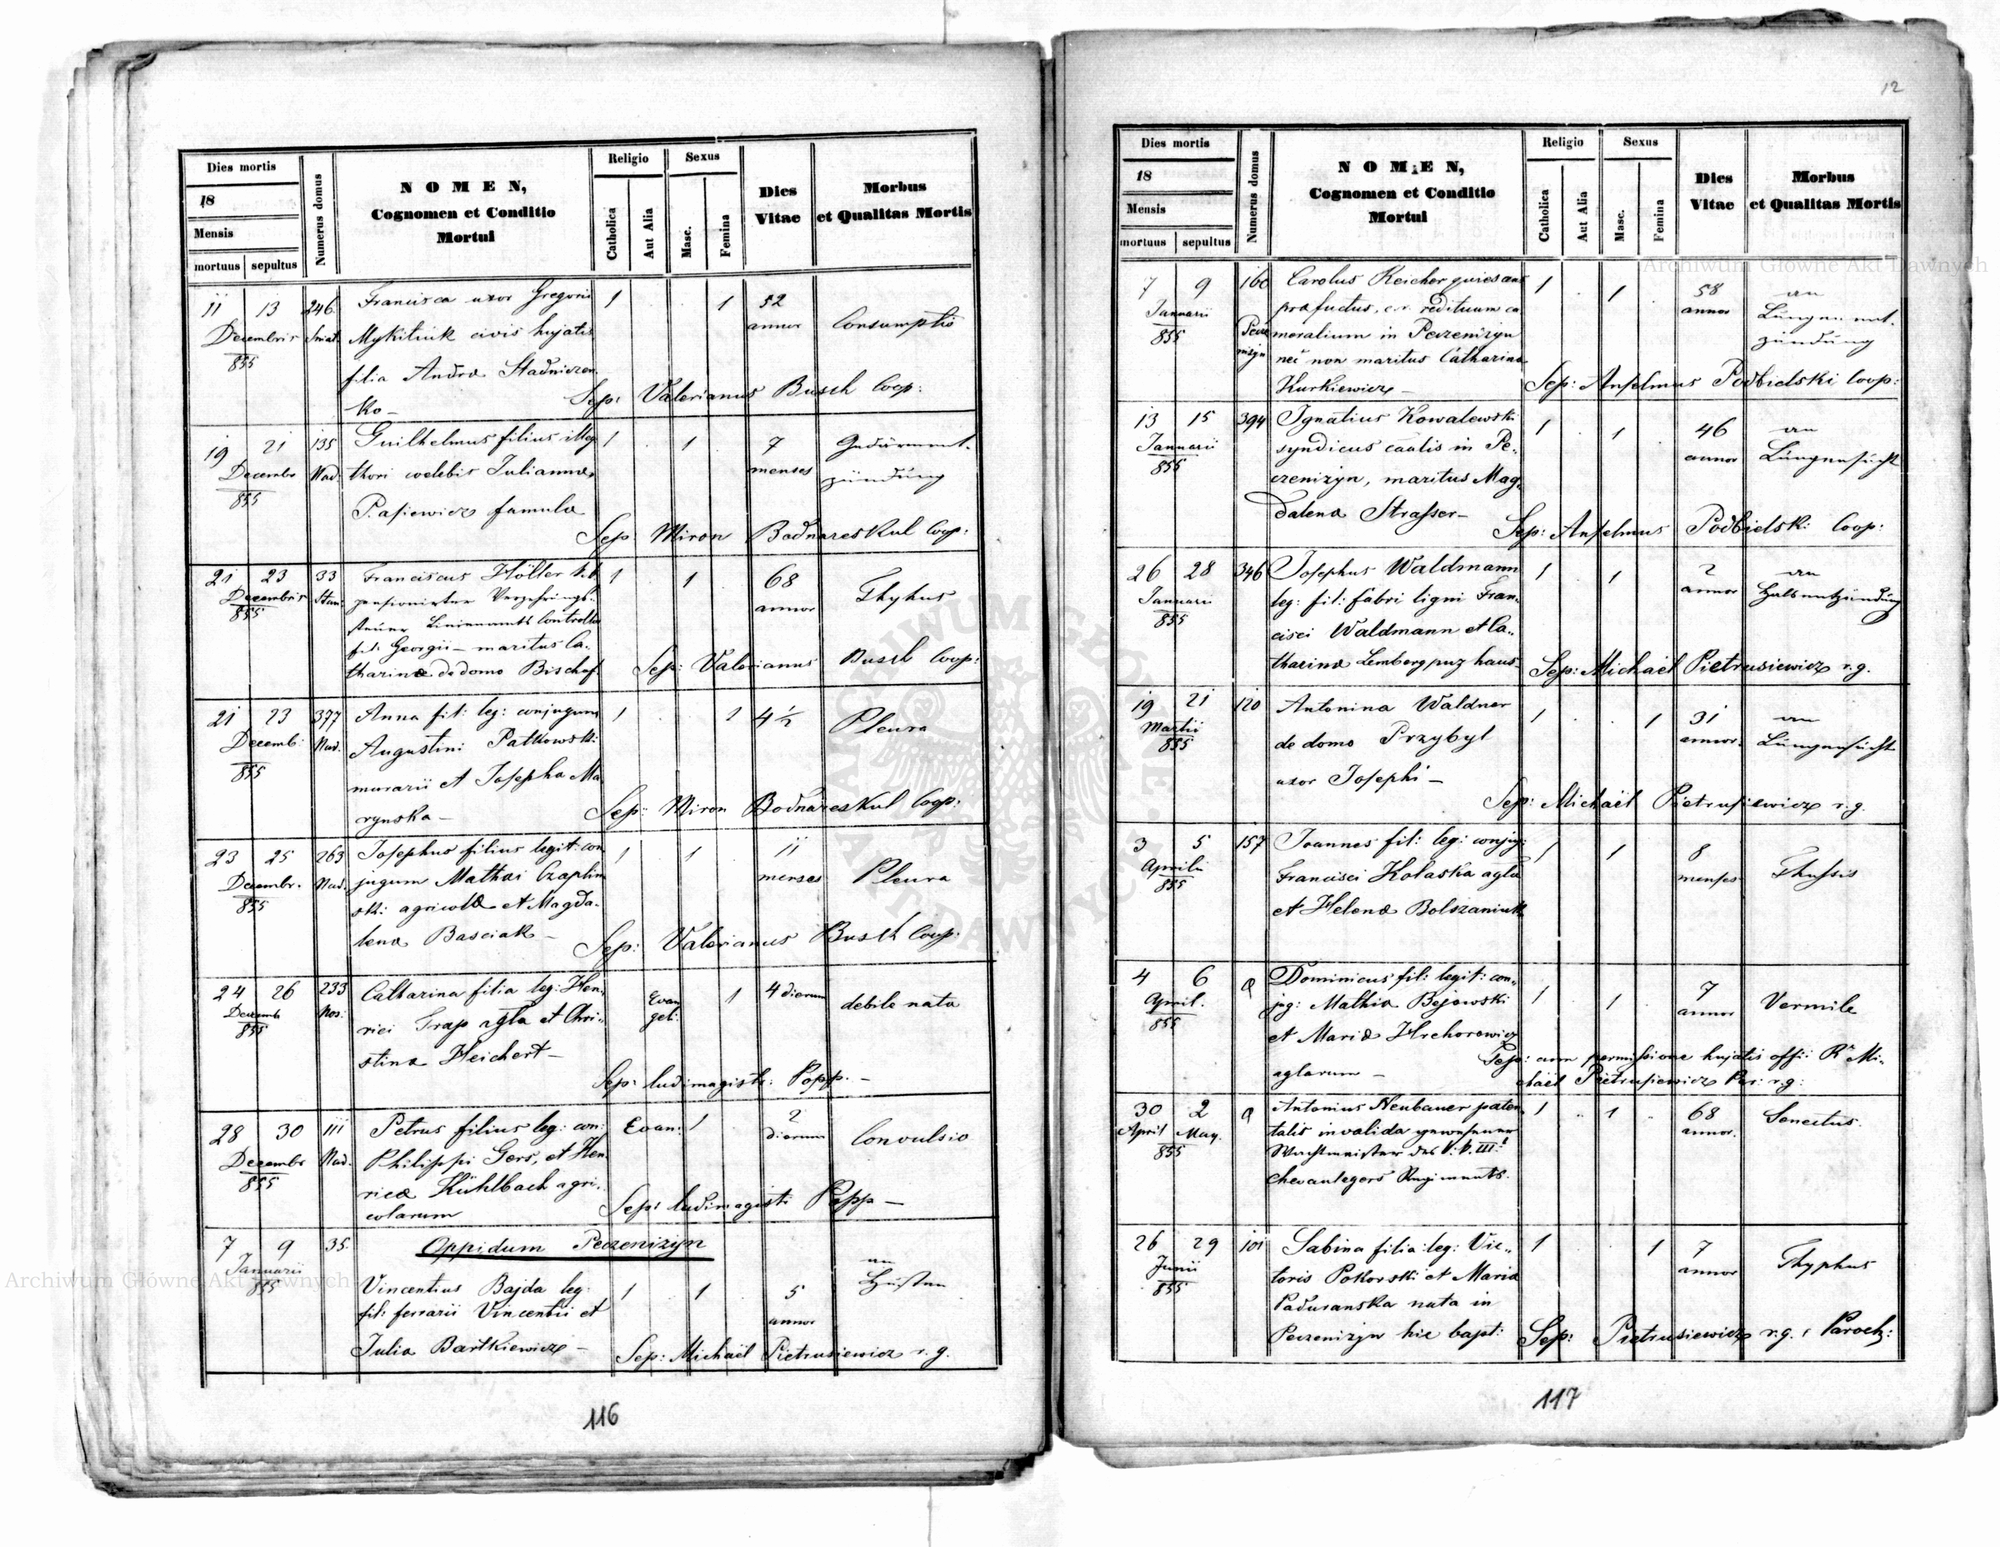 12
Dies mortis
18
Mensis
mortuus sepultus
Numerus domus
NOMEN,
Cognomen et Conditio
Mortui
Religio
Catholica
Aut Alia
Sexus
Masc.
Femina
Dies
Vitae
Morbus
et Qualitas Mortis
11 13 246 Francisca uxor Gregorii 1 . . 1 52
Decembris Sniat. Mykitiuk civis hujatis annor Consumptio
855 filia Andreae Stadniczen
ko – Sep: Valerianus Busch Coop:
19 21 135 Guilhelmus filius illeg 1 . 1 7
Decembr Nad. thori coelebis Julianna menses
855 Pasiewicz famula
Sep: Miron Bodnareskul Coop:
21 23 33 Franciscus Höller 1 1 68
Decembris pensionirter annor Thyhus
855 Controllor
fil: Georgii – maritus Ca-
tharinae de domo Bischof Sep: Valerianus Busch Coop:
21 23 377 Anna fil: leg: conjugum 1 . . 1 4½ Pleura
Decemb: Nad. Augustini Patkowski
855 murarii et Josepha Ma
rynska – Sep: Miron Bodnareskul Coop:
23 25 263 Josephus filius legit: con 1 1 11
Decembr. Nad. jugum Mathaei Czaplin menses Pleura
855 ski agricolae et Magda-
lena Basciak – Sep: Valerianus Busch Coop:
24 26 233 Catharina filia leg: Hen Evan 1 4 dierum debile nata
Decemb rici Trap agla et Chri- gel:
855 stina Heichert –
Sep: ludimagistr: Popp. –
28 30 111 Petrus filius leg: con: Evan: 1 2
Decembr Nad. Philippi Gers, et Hen dierum Convulsio
855 rica Kühlbach agri-
colarum Sep: ludimagistr Popp –
7 9 35 Oppidum Peczenizyn
Januarii an
855 Vincentius Bajda leg: 1 . 1 5 Husten
fil: ferrarii Vincentii et annor
Julia Bartkiewicz – Sep: Michaël Pietrusiewicz r. g.
116
Dies mortis
18
Mensis
mortuus sepultus
Numerus domus
NOMEN,
Cognomen et Conditio
Mortui
Religio
Catholica
Aut Alia
Sexus
Masc.
Femina
Dies
Vitae
Morbus
et Qualitas Mortis
7 9 160 Carolus Reicher quiescens 1 . 1 58 an
Januarii praefectus, c. r. redituum ca annor Lungenent-
855 Pecze moralium in Peczenizyn zündung
nizyn nec non maritus Catharina
Kurkiewicz – Sep: Anselmus Podbielski Coop:
13 15 394 Ignatius Kowalewski 1 . 1 46 an
Januarii syndicus in Pe- annor Lungensucht
855 czenizyn, maritus Mag-
dalena Strasser – Sep: Anselmus Podbielski Coop:
26 28 346 Josephus Waldmann 1 . 1 2 an
Januarii leg: fil: fabri ligni Fran- annor Halsentzündung
855 cisci Waldmann et Ca-
tharina haus- Sep: Michaël Pietrusiewicz r. g.
19 21 120 Antonina Waldner 1 . . 1 31 an
Martii de domo Przybyl annor. Lungensucht
855 uxor Josephi –
Sep: Michaël Pietrusiewicz r. g.
3 5 157 Joannes fil: leg: conjug: 1 1 8
Aprilis Francisci Kolaska agla menses Thussis
855 et Helena Bolszaniuk
4 6 Dominicus fil: legit: con- 1 1 7
April. jug: Mathia Bejowski annor Vermile
855 et Maria Hrehorowicz
aglarum – Sep: cum permissione hujatis offii Rs Mi-
chaël Pietrusiewicz Par: r. g:
30 2 Antonius Neubauer paten 1 . 1 . 68 Senectus.
April May. talis invalida gewesener annor.
855 Wachtmeister des k.k. III.t
Chevaulegers Regiments.
26 29 101 Sabina filia leg: Vic- 1 . . 1 7
Junii toris Pokorski et Maria annor Thyphus
855 Paduranska nata in
Peczenizyn hic bapt: Sep: Pietrusiewicz r. g. Paroch:
117
Archiwum Główne Akt Dawnych
Archiwum Główne Akt Dawnych
ARCHIWUM GŁÓWNE AKT DAWNYCH